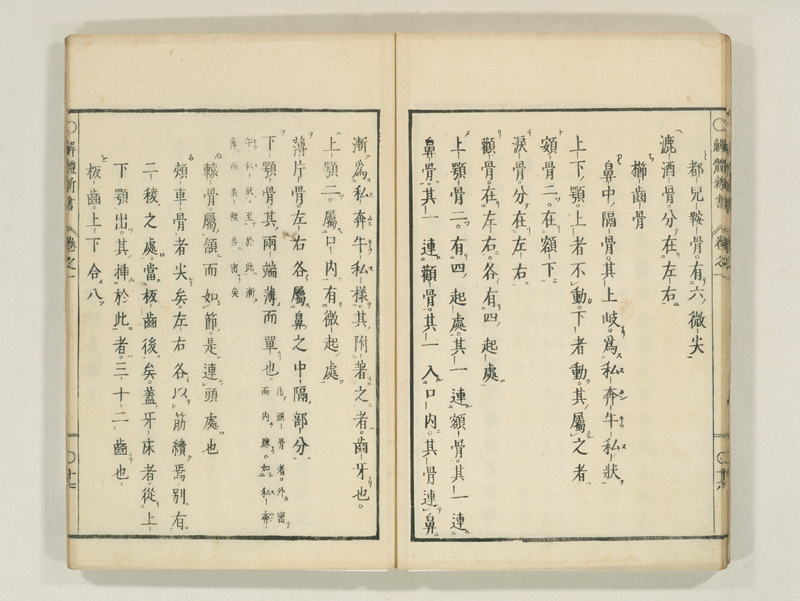 都兒鞍骨。有六微尖
漉酒骨。分在左右
櫛齒骨
鼻中隔骨。其上岐。爲私奔牛私狀
上下顎。上者不動。下者動。其屬之者
額骨二。在額下
淚骨分在左右
顴骨。在左右。各有四起處
上顎骨二。有四起處。其一連額骨。其一連
鼻骨。其一連顴骨。其一入口内。其骨連鼻
漸爲私奔牛私樣。其附著之者。齒牙也。
上顎二。屬口内有微起處
薄片骨。左右各屬鼻之中隔部分
下顎骨。其兩端薄而單也
凡頭骨者。外密
而内疎。如私奔
牛私狀。至於此漸
薄而表裡共密矣
轅骨。屬頷而如節。是連頭處也
頰車骨者尖矣左右各以筋續焉。別有
二稜之處。當板齒後矣。蓋牙床者。從上
下顎出。其挿於此者。三十二齒也
板齒。上下合八
解體新書
卷之一